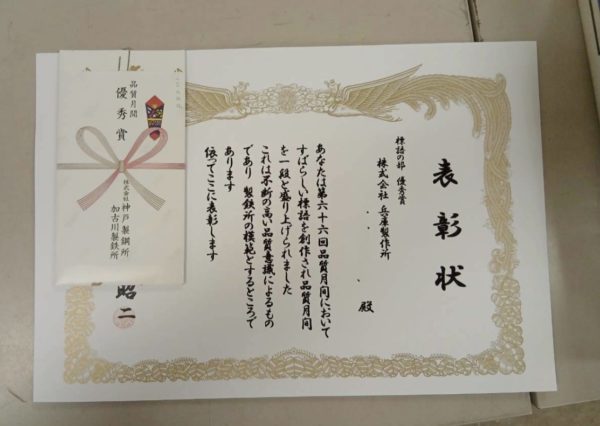 表彰状
標語の部 優秀賞
株式会社 兵庫製作所
殿
あなたは第六十六回品質月間において
すばらしい標語を創作され品質月間
を一段と盛り上げられました
これは不断の高い品質意識によるもの
であり 製鉄所の模範とするところで
あります
依ってここに表彰します
昭二
品質月間
優秀賞
株式会社 神戸製鋼所
加古川製鉄所